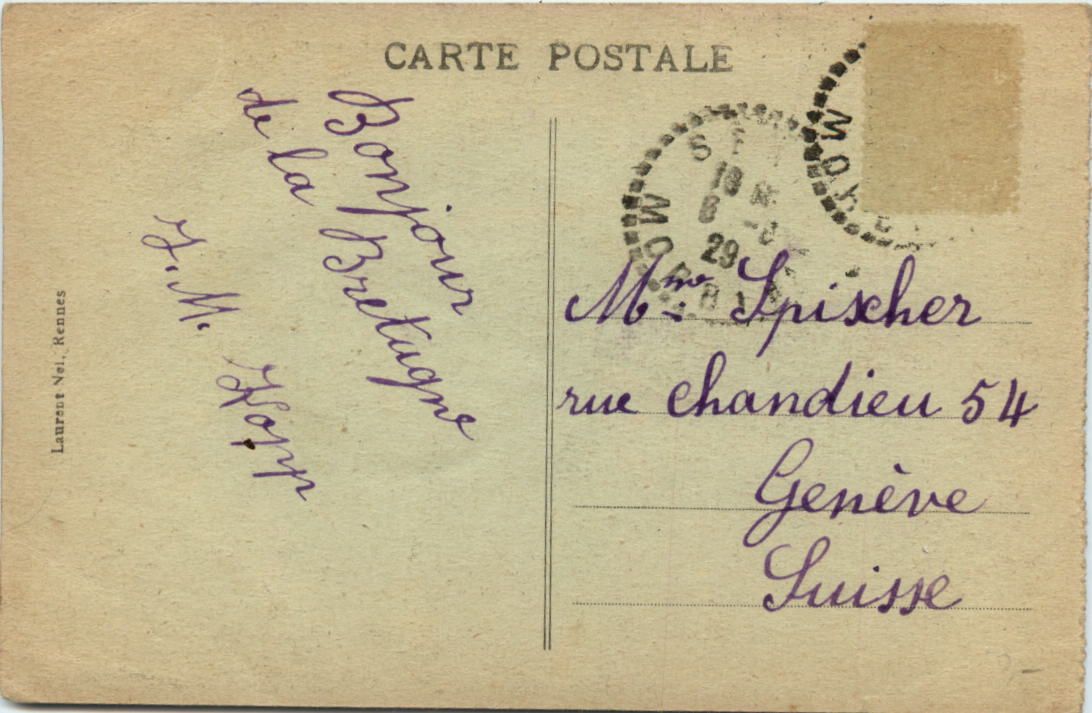 CARTE POSTALE
Bonjour
de la Bretagne
J. M. Kopp
Laurent Nel, Rennes
18
6 -8
29
MORBIHAN
MORB
Mme. Spischer
rue Chandieu 54
Genève
Suisse